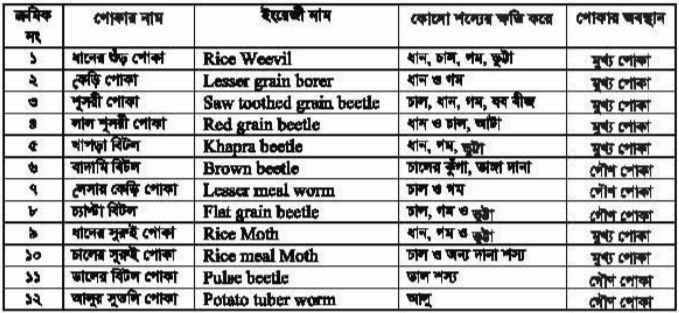 ক্রমিক নং পোকার নাম ইংরেজী নাম কোনো শস্যের ক্ষতি করে পোকার অবস্থান
১ ধানের শুঁড় পোকা Rice Weevil ধান, চাল, গম, ভুট্টা মুখ্য পোকা
২ কেড়ি পোকা Lesser grain borer ধান ও গম মুখ্য পোকা
৩ শূসরী পোকা Saw toothed grain beetle চাল, ধান, গম, যব বীজ মুখ্য পোকা
৪ লাল শূসরী পোকা Red grain beetle ধান ও চাল, আটা মুখ্য পোকা
৫ খাপড়া বিটল Khapra beetle ধান, গম, ভুট্টা মুখ্য পোকা
৬ বাদামি বিটল Brown beetle চালের কুঁড়া, ভাঙ্গা দানা গৌণ পোকা
৭ লেসার কেড়ি পোকা Lesser meal worm চাল ও গম গৌণ পোকা
৮ চ্যাপ্টা বিটল Flat grain beetle চাল, গম ও ভুট্টা গৌণ পোকা
৯ ধানের সুরুই পোকা Rice Moth ধান, গম ও ভুট্টা মুখ্য পোকা
১০ চালের সুরুই পোকা Rice meal Moth চাল ও অন্য দানা শস্য মুখ্য পোকা
১১ ডালের বিটল পোকা Pulse beetle ডাল শস্য গৌণ পোকা
১২ আলুর সুতলি পোকা Potato tuber worm আলু গৌণ পোকা